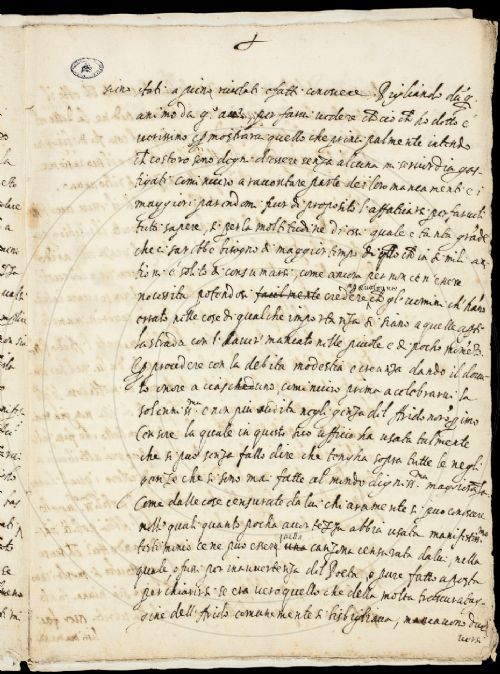 sino stati a pieno rivisti
animo da per farvi vedere che ciò che ho detto è
verissimo mostrare quello che principalmente intendo
che costoro sono degni d'essere senza alcuna misericordia gas
tigati comincierò a raccontare parte dei loro mancamenti e i
maggiori parendomi fuor di proposito l'affaticarmi per farveli
tutti sapere, si per la moltitudine di essi quale è tanta grāde
che ci sarebbe bisogno di maggior tempo di che in
è solito di consumarsi, come ancora per non ce n'essere
necessità potendosi facilmente credere che gl'huomini
errato nelle cose di qualche importanza si siano a quelle
la strada con l'haver mancato nelle picole e di pocho
procedere con la debita modestia e creanza dando il dovu
to onore a ciascheduno comincierò prima a celebrarvi la
solenniss.ma e non più udita negligenza dell' Arido
Censore la quale in questo suo ufficio ha usata talmente
che si può senza fallo dire che tengha sopra tutte le negli
genze che si sono mai fatte al mondo
Come dalle cose censurate da lui chiaramente si può conoscere
nelle quali quanto pocha avertezza abbia usata
testimonio ce ne può essere una canzone censurata da lui, nella
quale o fusse per inavvertenza del Poeta, o pure fatto a posta
per chiarirsi se era vero quello che della molta trascurag
gine dell' Arido comunemente si bisbigliava, mancavono due
versi